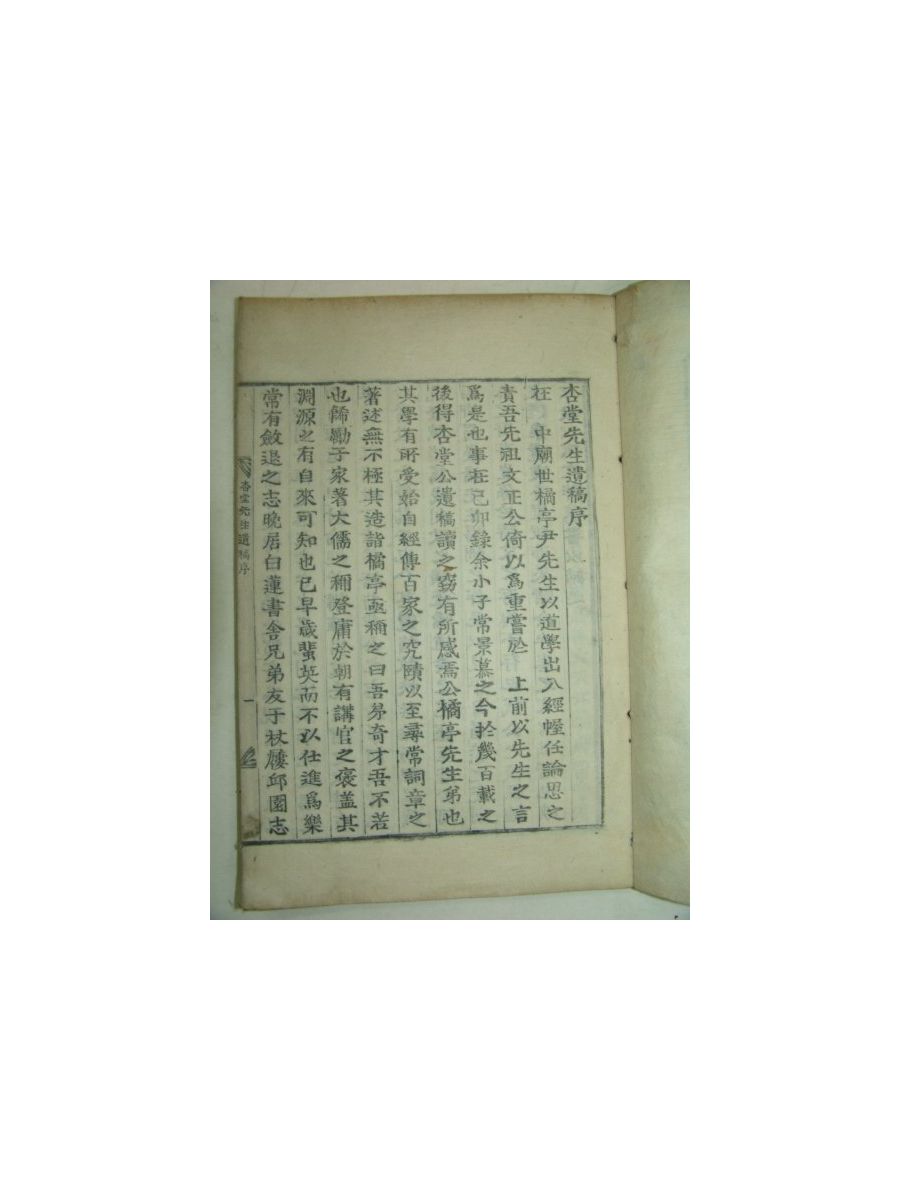 杏堂先生遺稿序
在 中廟世橘亭尹先生以道學出入經幄任論思之
責吾先祖文正公倚以爲重嘗於 上前以先生之言
爲是也事在己卯錄余小子常景慕之今於幾百載之
後得杏堂公遺稿讀之竊有所感焉公橘亭先生弟也
其學有所受始自經傳百家之究賾以至尋常詞章之
著述無不極其造詣橘亭亟稱之曰吾弟奇才吾不若
也飾勵子家著大儒之稱登庸於朝有講官之褒盖其
淵源之有自來可知也已早歲蜚英而不以仕進爲樂
常有斂退之志晩居白蓮書舍兄弟友于杖屨邱園志
杏堂先生遺稿序
一